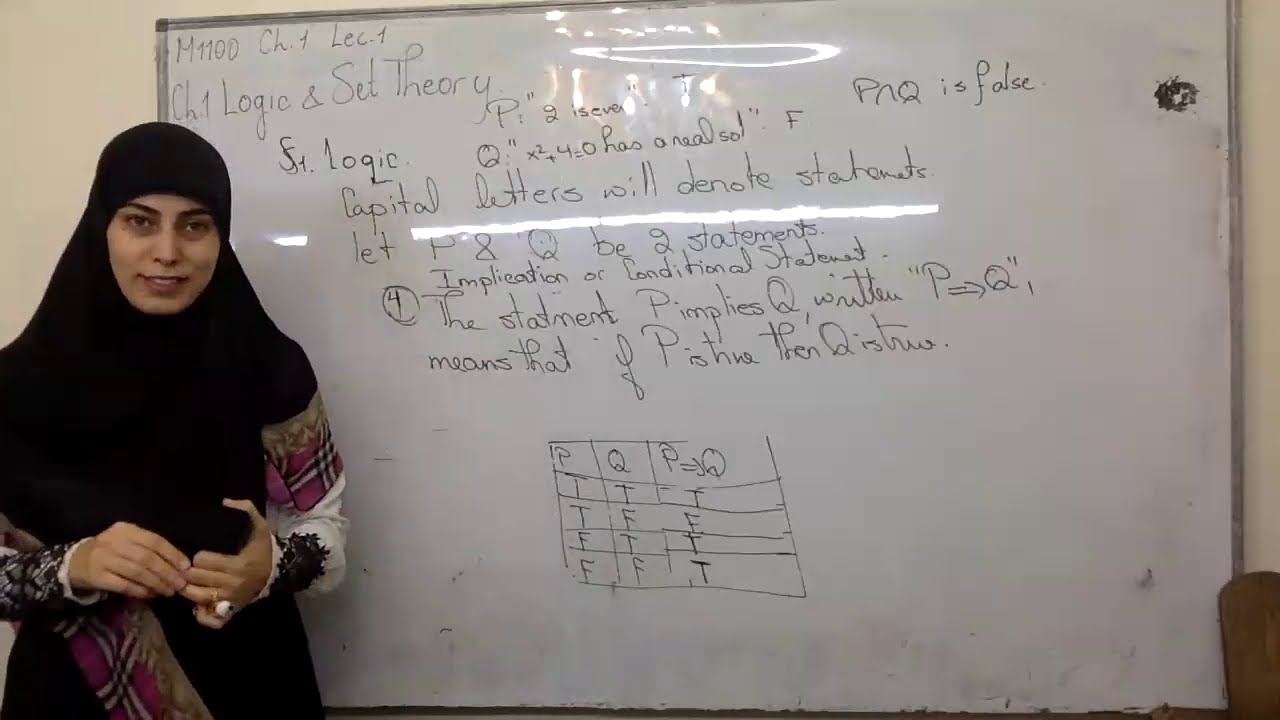 M1100 Ch.1 Lec.1
Ch.1 Logic & Set Theory
P: "2 is even". T
P∧Q is false.
§1. Logic.
Q: "x²+4=0 has a real sol". F
Capital letters will denote statements.
let P & Q be 2 statements.
Implication or Conditional Statement.
④ The statment P implies Q, written "P⇒Q",
means that if P is true then Q is true.
P Q P⇒Q
T T T
T F F
F T T
F F T